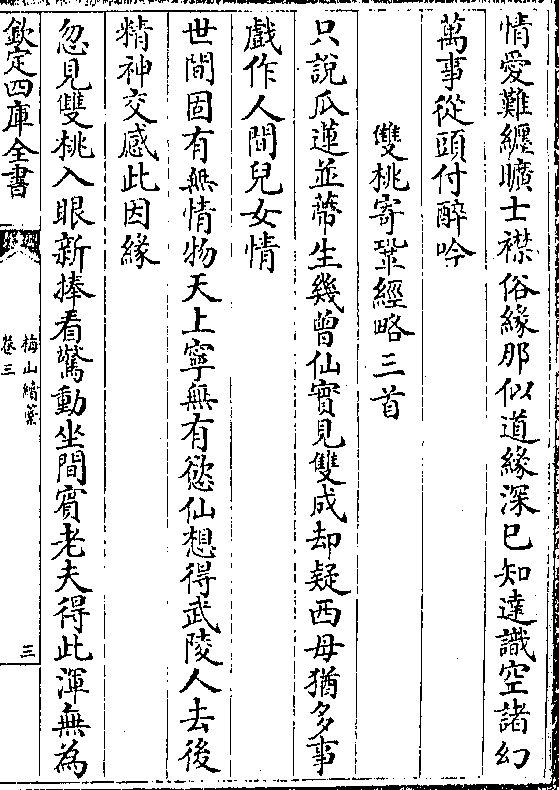 情愛難纒曠士襟俗緣那似道緣深已知達識空諸幻
萬事從頭付醉吟
雙桃寄鞏經略三首
只說瓜蓮並蔕生幾曾仙實見雙成却疑西母猶多事
戲作人間兒女情
世間固有無情物天上寧無有慾仙想得武陵人去後
精神交感此因緣
忽見雙桃入眼新捧看驚動坐間賓老夫得此渾無為
欽定四庫全書
梅山續藁
卷三
三